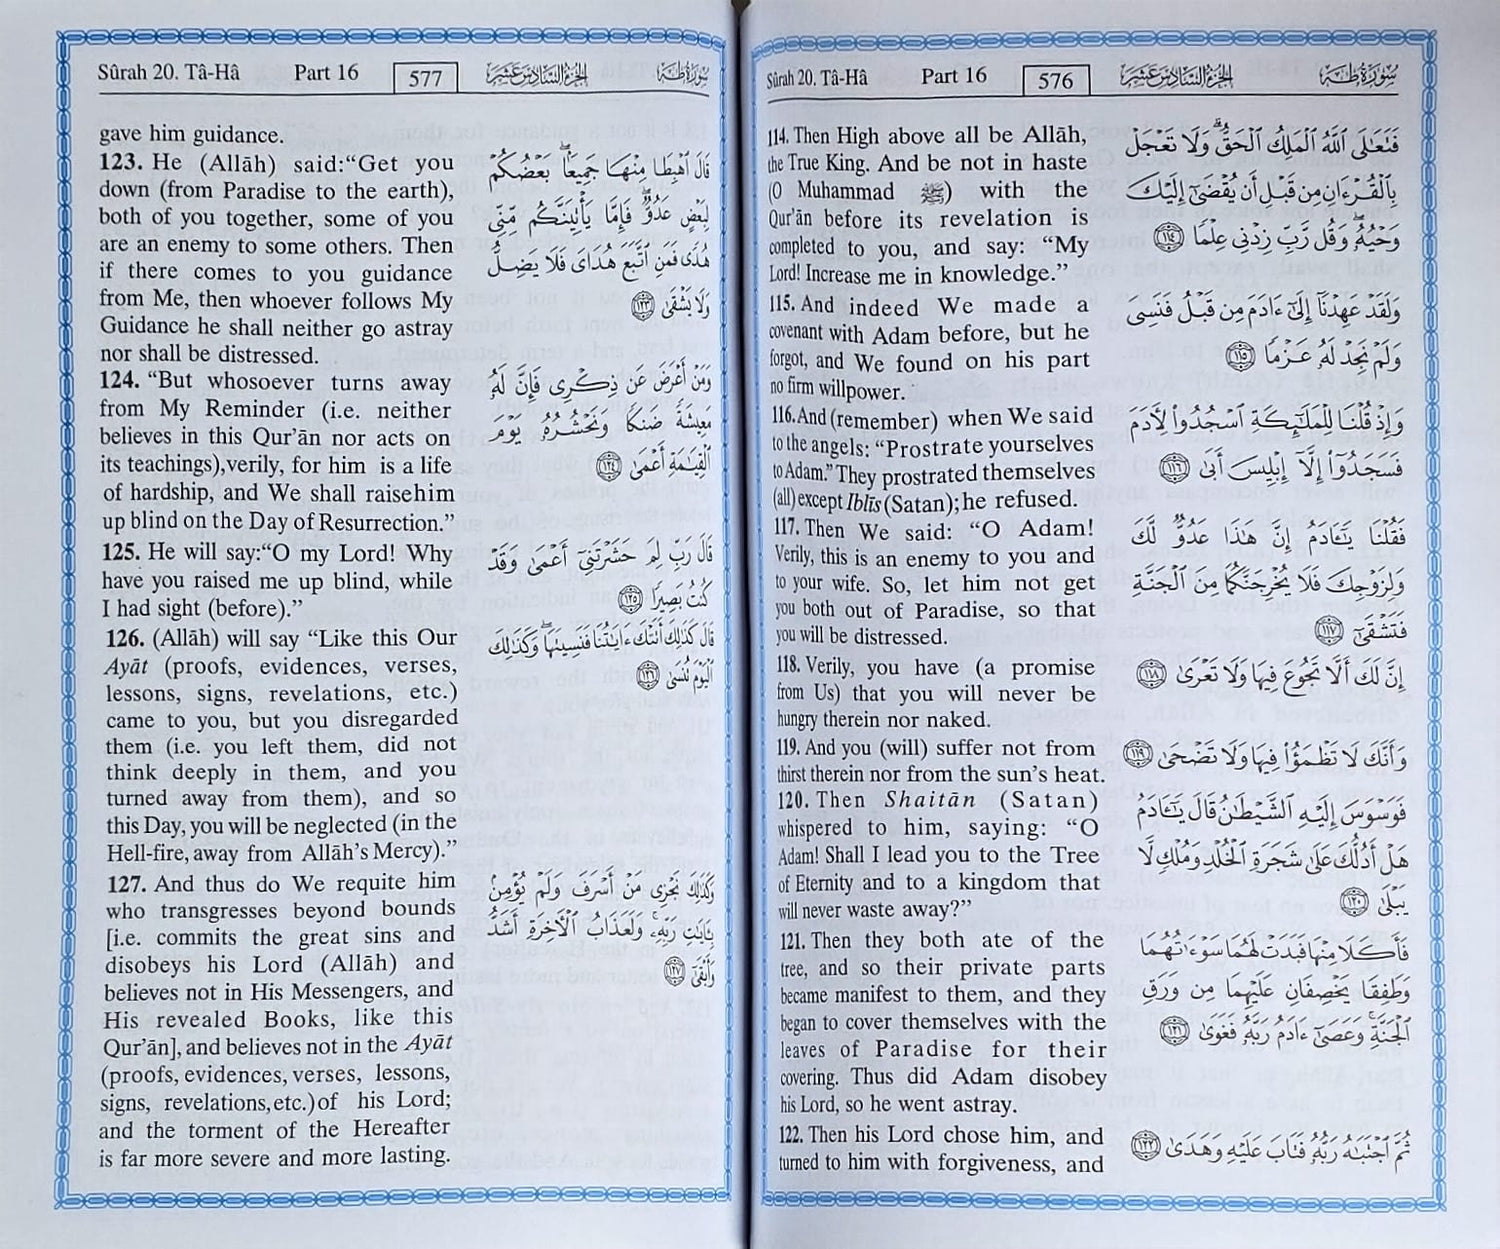 Sûrah 20. Tâ-Hâ Part 16 576 الجزء السادس عشر سورة طه
114. Then High above all be Allāh,
the True King. And be not in haste
(O Muhammad ﷺ) with the
Qur'ān before its revelation is
completed to you, and say: “My
Lord! Increase me in knowledge.”
115. And indeed We made a
covenant with Adam before, but he
forgot, and We found on his part
no firm willpower.
116. And (remember) when We said
to the angels: “Prostrate yourselves
to Adam.” They prostrated themselves
(all) except Iblîs (Satan); he refused.
117. Then We said: “O Adam!
Verily, this is an enemy to you and
to your wife. So, let him not get
you both out of Paradise, so that
you will be distressed.
118. Verily, you have (a promise
from Us) that you will never be
hungry therein nor naked.
119. And you (will) suffer not from
thirst therein nor from the sun's heat.
120. Then Shaitān (Satan)
whispered to him, saying: “O
Adam! Shall I lead you to the Tree
of Eternity and to a kingdom that
will never waste away?”
121. Then they both ate of the
tree, and so their private parts
became manifest to them, and they
began to cover themselves with the
leaves of Paradise for their
covering. Thus did Adam disobey
his Lord, so he went astray.
122. Then his Lord chose him, and
turned to him with forgiveness, and
فَتَعَٰلَى ٱللَّهُ ٱلْمَلِكُ ٱلْحَقُّ ۗ وَلَا تَعْجَلْ
بِٱلْقُرْءَانِ مِن قَبْلِ أَن يُقْضَىٰٓ إِلَيْكَ
وَحْيُهُۥ ۖ وَقُل رَّبِّ زِدْنِى عِلْمًا ١١٤
وَلَقَدْ عَهِدْنَآ إِلَىٰٓ ءَادَمَ مِن قَبْلُ فَنَسِىَ
وَلَمْ نَجِدْ لَهُۥ عَزْمًا ١١٥
وَإِذْ قُلْنَا لِلْمَلَٰٓئِكَةِ ٱسْجُدُوا۟ لِءَادَمَ
فَسَجَدُوٓا۟ إِلَّآ إِبْلِيسَ أَبَىٰ ١١٦
فَقُلْنَا يَٰٓـَٔادَمُ إِنَّ هَٰذَا عَدُوٌّ لَّكَ
وَلِزَوْجِكَ فَلَا يُخْرِجَنَّكُمَا مِنَ ٱلْجَنَّةِ
فَتَشْقَىٰٓ ١١٧
إِنَّ لَكَ أَلَّا تَجُوعَ فِيهَا وَلَا تَعْرَىٰ ١١٨
وَأَنَّكَ لَا تَظْمَؤُا۟ فِيهَا وَلَا تَضْحَىٰ ١١٩
فَوَسْوَسَ إِلَيْهِ ٱلشَّيْطَٰنُ قَالَ يَٰٓـَٔادَمُ
هَلْ أَدُلُّكَ عَلَىٰ شَجَرَةِ ٱلْخُلْدِ وَمُلْكٍ لَّا
يَبْلَىٰ ١٢٠
فَأَكَلَا مِنْهَا فَبَدَتْ لَهُمَا سَوْءَٰتُهُمَا
وَطَفِقَا يَخْصِفَانِ عَلَيْهِمَا مِن وَرَقِ
ٱلْجَنَّةِ ۚ وَعَصَىٰٓ ءَادَمُ رَبَّهُۥ فَغَوَىٰ ١٢١
ثُمَّ ٱجْتَبَٰهُ رَبُّهُۥ فَتَابَ عَلَيْهِ وَهَدَىٰ ١٢٢
Sûrah 20. Tâ-Hâ Part 16 577 الجزء السادس عشر سورة طه
gave him guidance.
123. He (Allāh) said:“Get you
down (from Paradise to the earth),
both of you together, some of you
are an enemy to some others. Then
if there comes to you guidance
from Me, then whoever follows My
Guidance he shall neither go astray
nor shall be distressed.
124. “But whosoever turns away
from My Reminder (i.e. neither
believes in this Qur'ān nor acts on
its teachings), verily, for him is a life
of hardship, and We shall raise him
up blind on the Day of Resurrection.”
125. He will say:“O my Lord! Why
have you raised me up blind, while
I had sight (before).”
126. (Allāh) will say “Like this Our
Ayāt (proofs, evidences, verses,
lessons, signs, revelations, etc.)
came to you, but you disregarded
them (i.e. you left them, did not
think deeply in them, and you
turned away from them), and so
this Day, you will be neglected (in the
Hell-fire, away from Allāh's Mercy).”
127. And thus do We requite him
who transgresses beyond bounds
[i.e. commits the great sins and
disobeys his Lord (Allāh) and
believes not in His Messengers, and
His revealed Books, like this
Qur'ān], and believes not in the Ayāt
(proofs, evidences, verses, lessons,
signs, revelations, etc.) of his Lord;
and the torment of the Hereafter
is far more severe and more lasting.
قَالَ ٱهْبِطَا مِنْهَا جَمِيعًۢا ۖ بَعْضُكُمْ
لِبَعْضٍ عَدُوٌّ ۖ فَإِمَّا يَأْتِيَنَّكُم مِّنِّى
هُدًى فَمَنِ ٱتَّبَعَ هُدَاىَ فَلَا يَضِلُّ
وَلَا يَشْقَىٰ ١٢٣
وَمَنْ أَعْرَضَ عَن ذِكْرِى فَإِنَّ لَهُۥ
مَعِيشَةً ضَنكًا وَنَحْشُرُهُۥ يَوْمَ
ٱلْقِيَٰمَةِ أَعْمَىٰ ١٢٤
قَالَ رَبِّ لِمَ حَشَرْتَنِىٓ أَعْمَىٰ وَقَدْ
كُنتُ بَصِيرًا ١٢٥
قَالَ كَذَٰلِكَ أَتَتْكَ ءَايَٰتُنَا فَنَسِينَهَا ۖ وَكَذَٰلِكَ
ٱلْيَوْمَ تُنسَىٰ ١٢٦
وَكَذَٰلِكَ نَجْزِى مَنْ أَسْرَفَ وَلَمْ يُؤْمِنۢ
بِـَٔايَٰتِ رَبِّهِۦ ۚ وَلَعَذَابُ ٱلْءَاخِرَةِ أَشَدُّ
وَأَبْقَىٰٓ ١٢٧